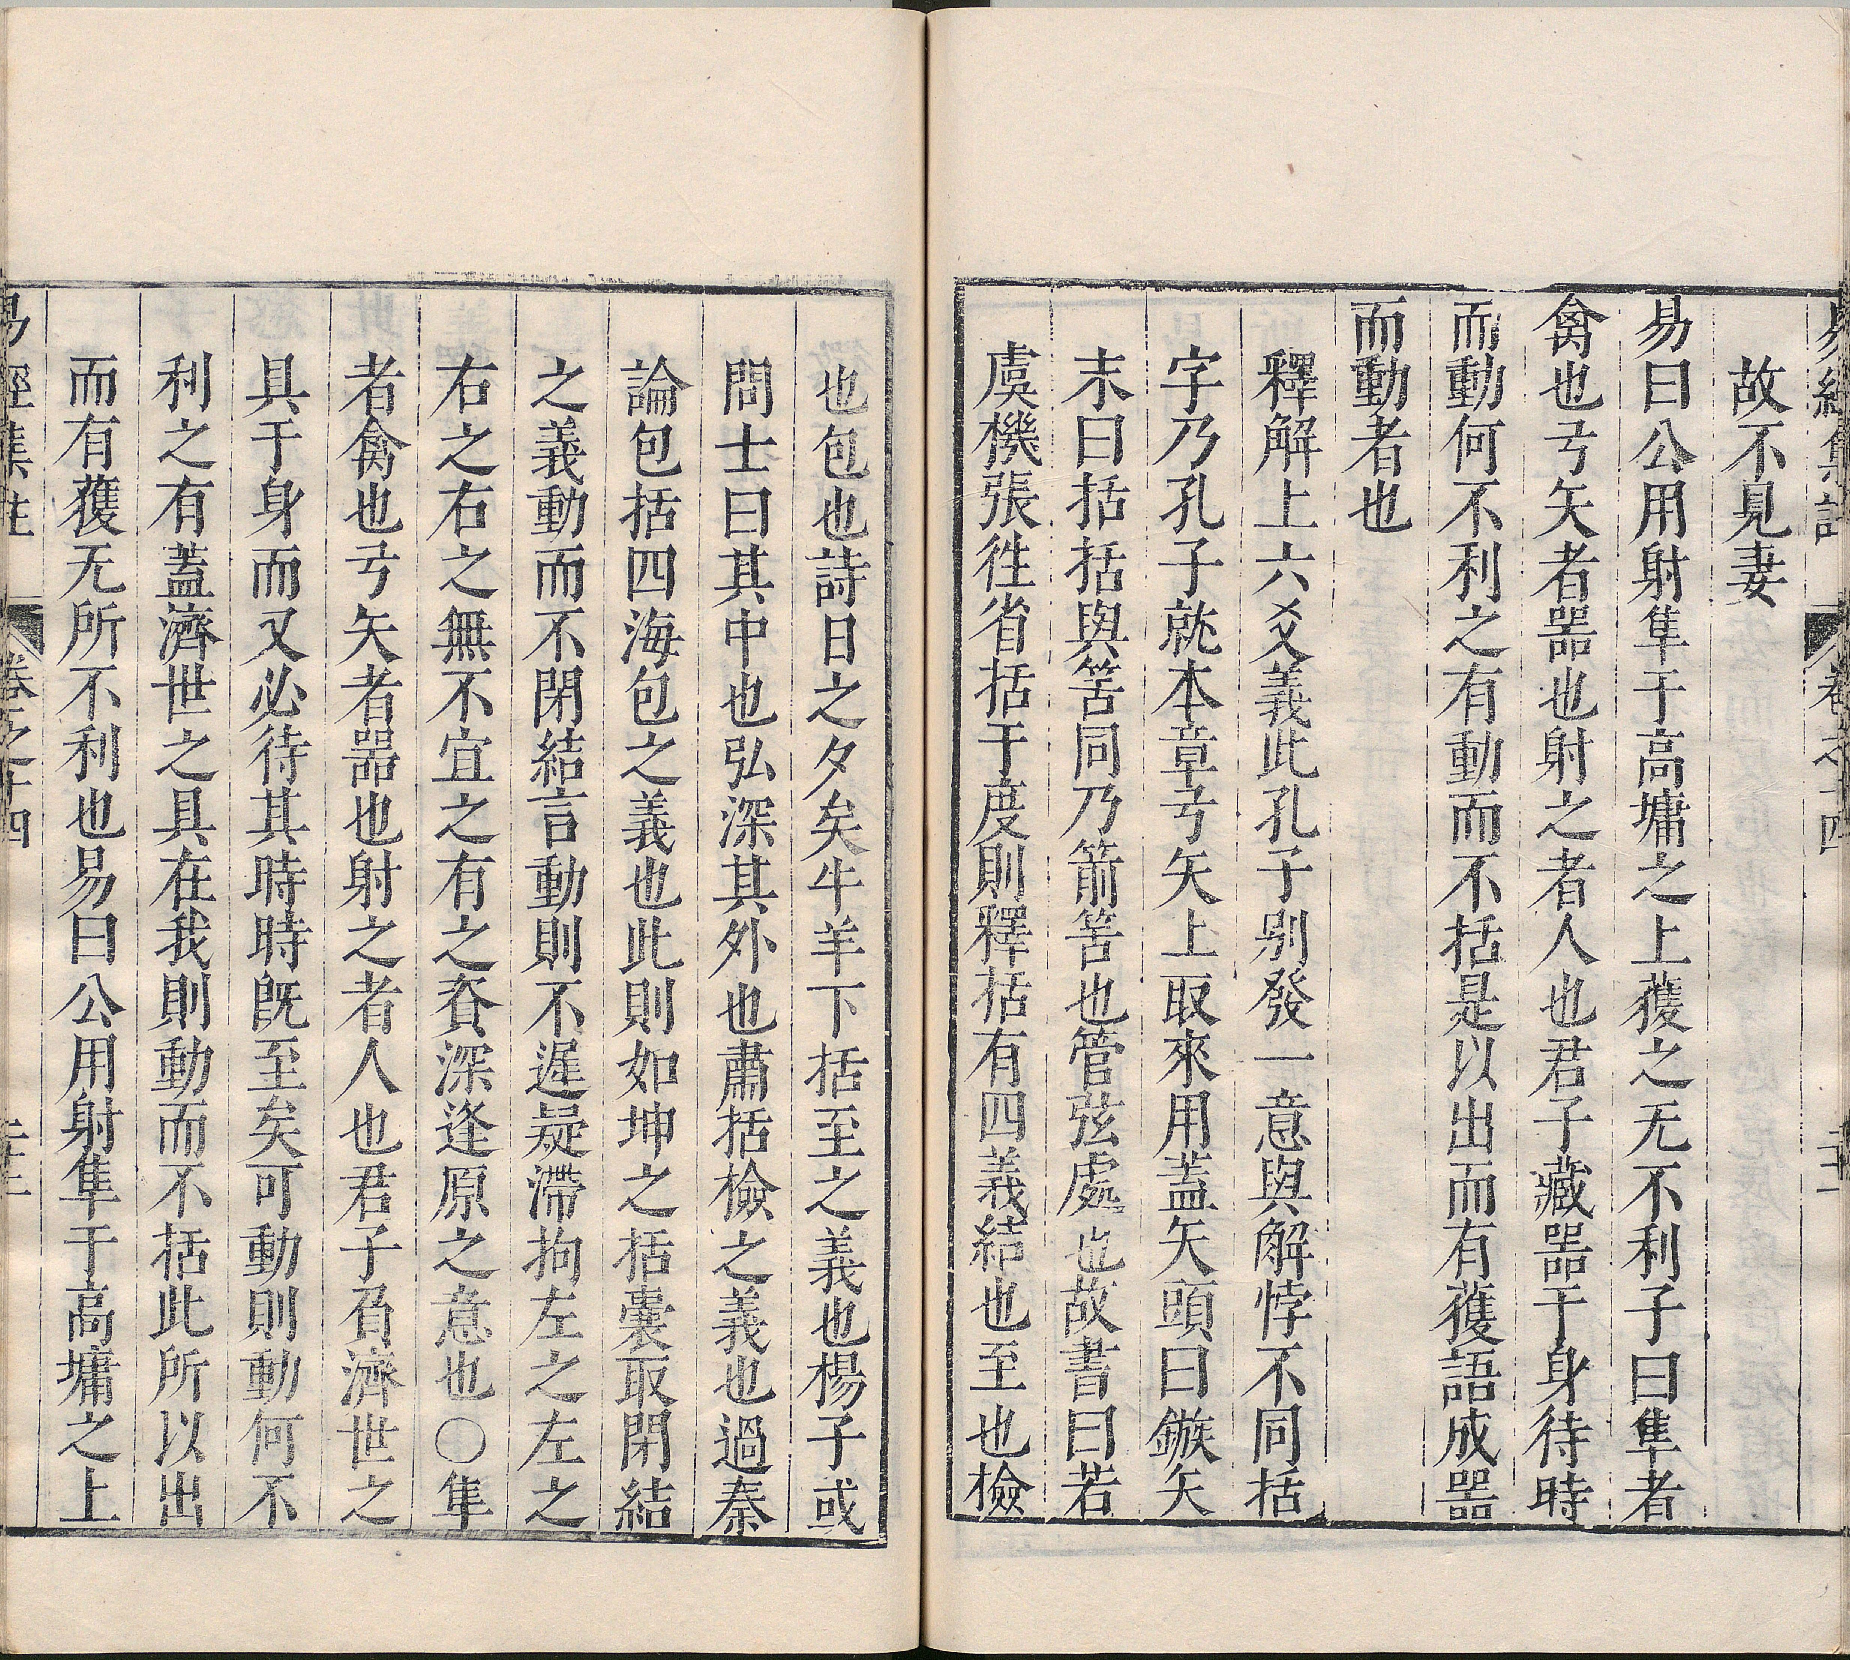 易經集註 卷之十四
故不見妻
易曰公用射隼于高墉之上獲之无不利子曰隼者
禽也弓矢者器也射之者人也君子藏器于身待時
而動何不利之有動而不括是以出而有獲語成器
而動者也
釋解上六爻義此孔子別發一意與解悖不同括
字乃孔子就本章弓矢上取來用蓋矢頭曰鏃矢
末曰括括與筈同乃箭筈也管弦處也故書曰若
虞機張徃省括于度則釋括有四義結也至也檢
也包也詩日之夕矣牛羊下括至之義也楊子或
問士曰其中也弘深其外也肅括檢之義也過秦
論包括四海包之義也此則如坤之括囊取閉結
之義動而不閉結言動則不遲疑滯拘左之左之
右之右之無不宜之有之資深逢原之意也○隼
者禽也弓矢者器也射之者人也君子有濟世之
具于身而又必待其時時旣至矣可動則動何不
利之有蓋濟世之具在我則動而不括此所以出
而有獲无所不利也易曰公用射隼于高墉之上
易經集註 卷之十四